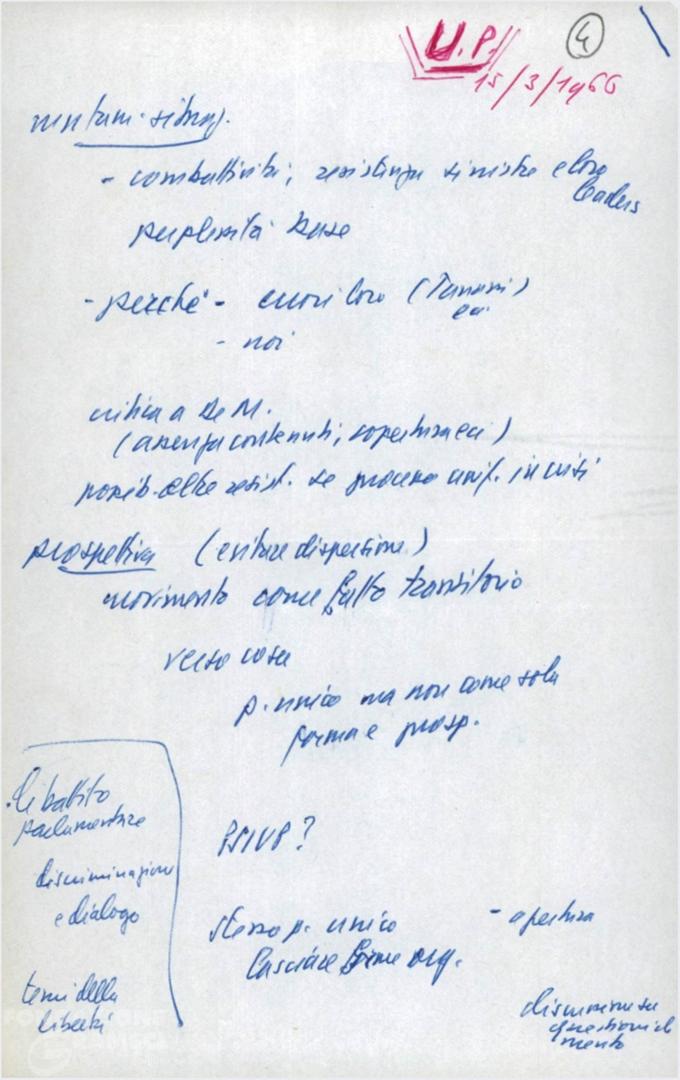 U.P.
4
15/3/1966
- combattività; resistenza sinistre e loro
leaders
perplessità base
- perché - errori loro (Tanassi)
ecc
- noi
critica a De M.
(assenza contenuti, copertura ecc)
possib. altre resist. se processo unif. in crisi
prospettiva (evitare dispersione)
movimento come fatto transitorio
verso cosa
p. unico ma non come sola
forma e prosp.
dibattito
parlamentare
discriminazione
e dialogo
temi della
libertà
PSIUP?
stesso p. unico
lasciare forme org.
- apertura
discussione su
questioni di
merito
FONDAZIONE